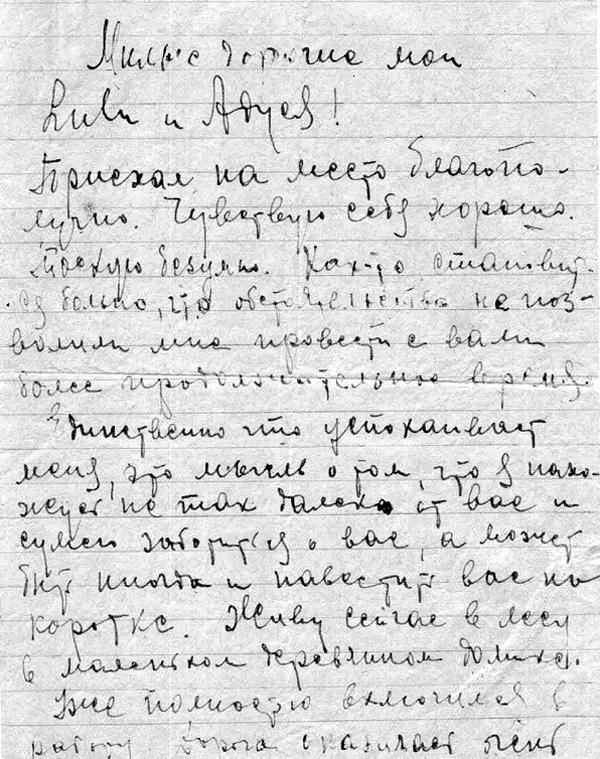 Милые дорогие мои
Lulu и Адуся!
Приехал на место благопо-
лучно. Чувствую себя хорошо.
Тоскую безумно. Как-то становит-
ся больно, что обстоятельства не поз-
волили мне провести с вами
более продолжительное время.
Единственно что успокаивает
меня, это мысль о том, что я нахо-
жусь не так далеко от вас и
сумею заботиться о вас, а может
быть иногда и навестить вас на
коротке. Живу сейчас в лесу
в маленьком деревянном домике.
Уже полностью включился в
работу. очень